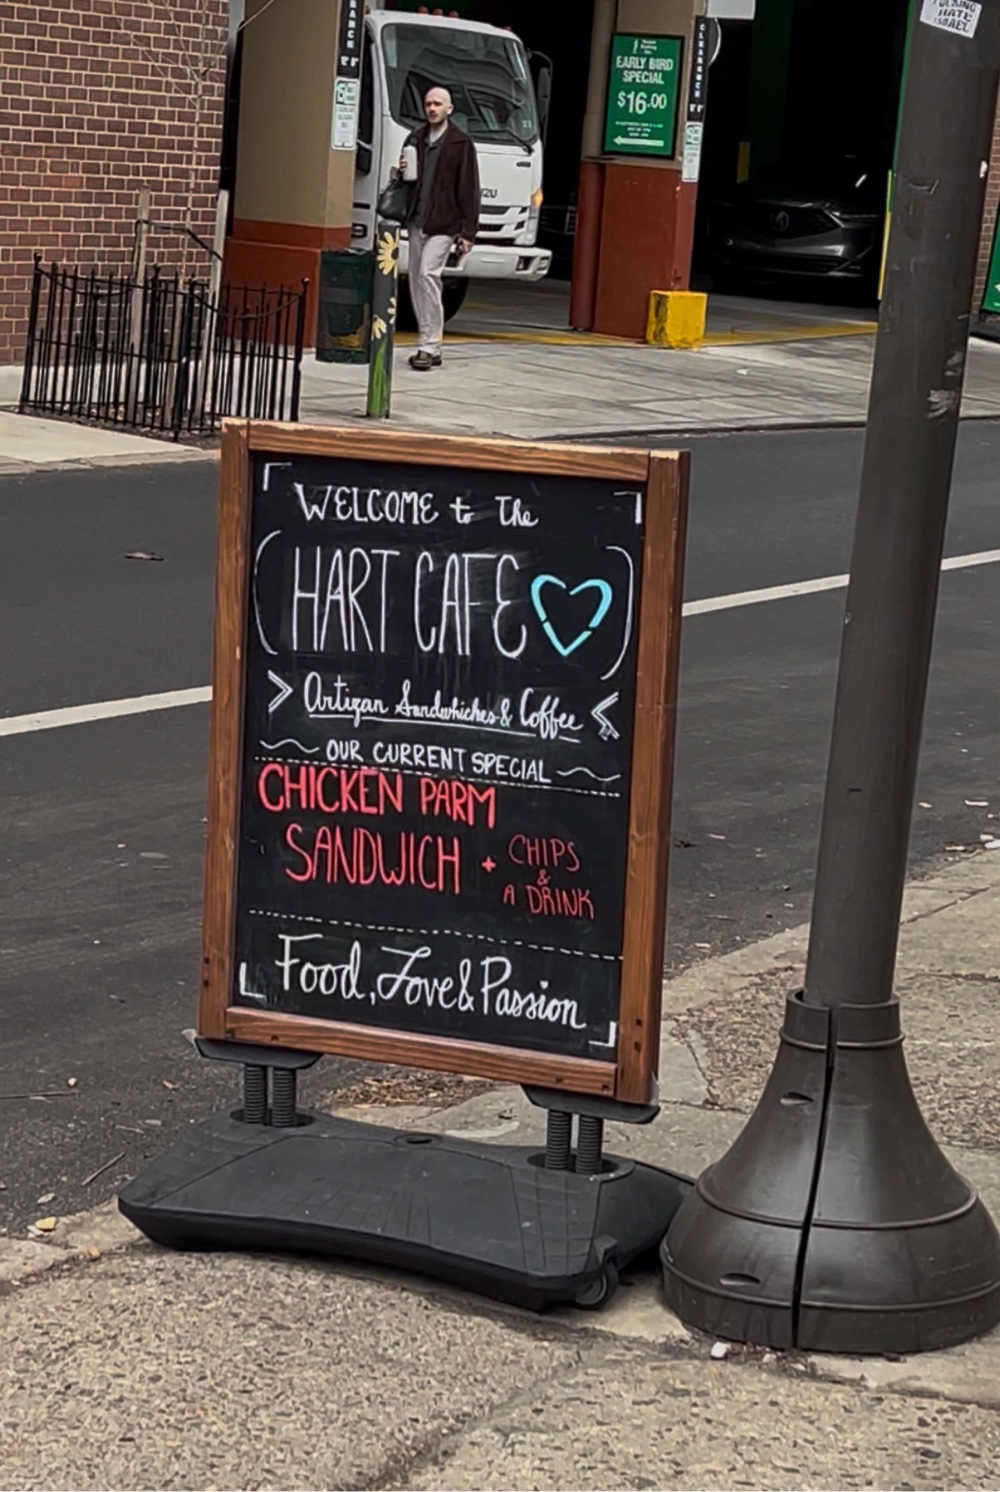 EARLY BIRD
SPECIAL
$16.00
HATE
WELCOME to The
HART CAFE
Artizan Sandwhiches & Coffee
OUR CURRENT SPECIAL
CHICKEN PARM
SANDWICH + CHIPS
&
A DRINK
Food, Love & Passion